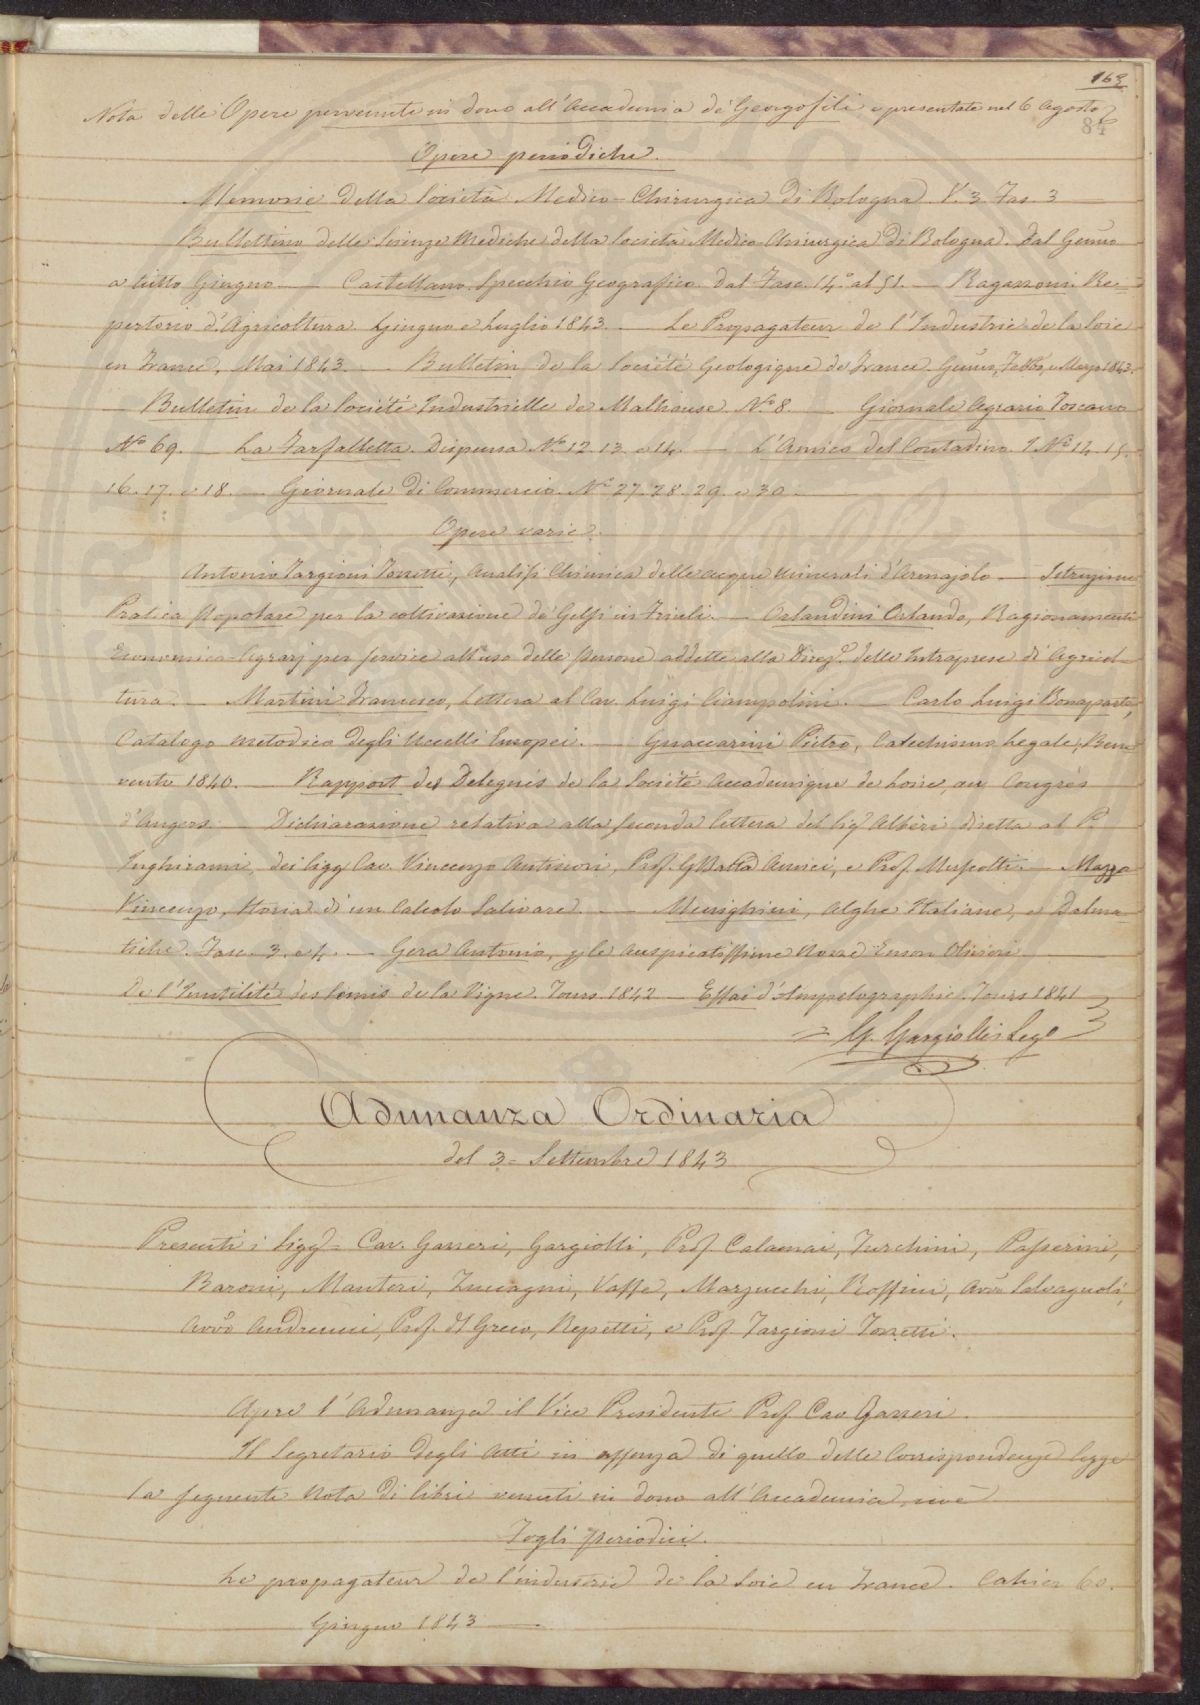 163
Nota delle Opere pervenute in dono all'Accademia de' Georgofili e presentate nel 6 Agosto
84
Opere periodiche.
Memorie della Società Medico-Chirurgica di Bologna. V. 3 Fas. 3
Bullettino delle Scienze Mediche della Società Medico Chirurgica di Bologna. Dal Genno
a tutto Giugno — Castellano. Specchio Geografico. Dal Fasc. 14.° al 51. — Ragazzoni. Re=
pertorio d'Agricoltura. Giugno e Luglio 1843. — Le Propagateur de l'Industrie de la Soie
en France, Mai 1843 — Bulletin de la Société Geologique de France. Genno, Febbo, e Marzo 1843.
— Bulletin de la Société Industrielle de Malhause. No. 8. — Giornale Agrario Toscano
No 69. — La Farfalletta. Dispensa No. 12. 13. e 14. — L'Amico del Contadino. Ni 14. 15.
16. 17. e 18. — Giornale di Commercio. Ni 27. 28. 29. e 30.
Opere varie.
Antonio Targioni Tozzetti, Analisi Chimica delle acque minerali d'Armajolo — Istruzione
Pratica Popolare per la coltivazione de' Gelsi in Friuli. — Orlandini Orlando, Ragionamenti
Economico-Agrarj per servire all'uso delle persone addette alla Direze. delle Intraprese di Agricol=
tura. — Martini Francesco, Lettera al Cav. Luigi Ciampolini. — Carlo Luigi Bonaparte,
Catalogo metodico degli Uccelli Europei. — Guaccarini Pietro, Catechismo Legale, Bene
vento 1840. — Rapport des Delegués de la Société Academique de Loire, au Congrès
d'Angers. — Dichiarazione relativa alla seconda lettera del Sigr Alberi diretta al P.
Inghirami, dei Sigg Cav. Vincenzo Antinori, Prof. G Batta Amici, e Prof. Mossotti — Mazza
Vincenzo, Storia d'un Calcolo Salivare. — Meneghini, Alghe Italiane, e Dalma=
tiche. Fasc. 3. e 4. — Gera Antonio, Per le Auspicatissime Nozze Olivieri
De l'Inutilité des Semis de la Vigne. Tours. 1842 — Essai d'Ampelographie. Tours 1841
= G. Gargiolli Sego
Adunanza Ordinaria
del 3 = Settembre 1843
Presenti i Sigg = Cav. Gazzeri, Gargiolli, Prof. Calamai, Turchini, Passerini,
Baroni, Manteri, Zuccagni, Vaffe, Marzucchi, Roffini, Avvo Salvagnoli,
Avvo Andreucci, Prof. Del Greco, Repetti, e Prof. Targioni Tozzetti.
Apre l'Adunanza il Vice Presidente Prof. Cav. Gazzeri.
Il Segretario degli Atti in assenza di quello delle Corrispondenze legge
la seguente Nota di libri venuti in dono all'Accademia, cioè
Fogli periodici.
Le propagateur de l'industrie de la Soie en France. Cahier 60.
Giugno 1843 —